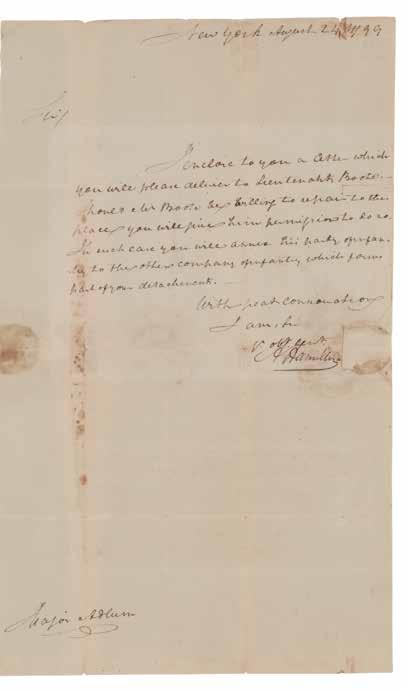 New York August 24 1799
Sir
I enclose to you a letter which
you will please deliver to Lieutenant Boote.
Should Mr Boote be willing to repair to the
place you will give him permission to do so.
In such case you will annex his party of infan-
try to the other company of infantry which forms
part of your detachment.
With great consideration
I am Sir
Yr obt servt
A Hamilton
Major Adlum